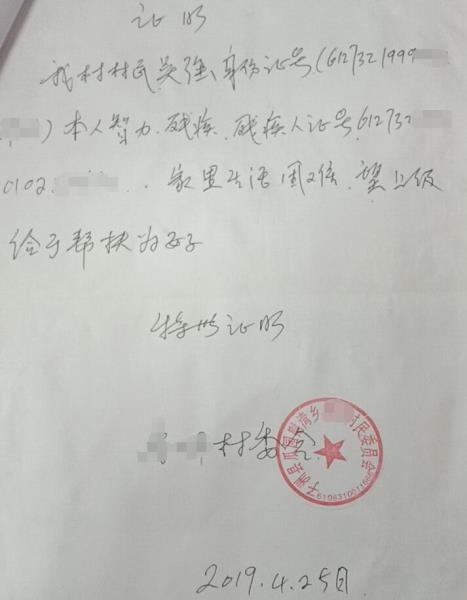 证明
我村村民吴强、身份证号(6127321999
)本人智力.残疾.残疾人证号612732
0102. . 家里生活困难.望上级
给予帮扶为好
特此证明
村委会
子洲县瓜园则湾乡 村民委员会
2019.4.25日